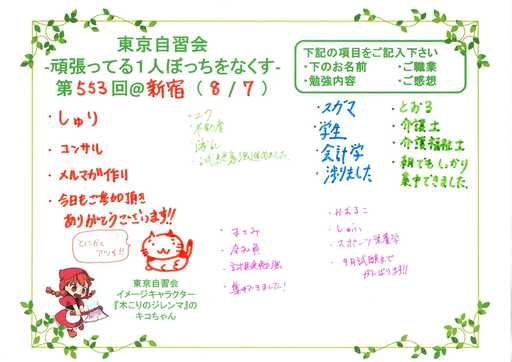 東京自習会
-頑張ってる１人ぼっちをなくす-
第553回@新宿（8/7）
下記の項目をご記入下さい
・下のお名前　・ご職業
・勉強内容　・ご感想
・しゅり
・コンサル
・メルマガ作り
・今日もご参加頂き
ありがとうございます!!
とにかく
アツイ!!
東京自習会
イメージキャラクター
『木こりのジレンマ』の
キコちゃん
・スガマ
・学生
・会計学
・渉りました
・とおる
・介護士
・介護福祉士
・朝でもしっかり
集中できました。
・まさみ
・会社員
・集中できました!
・かおるこ
・しゅふ
・スポーツ栄養学
・9月試験まで
がんばります!!